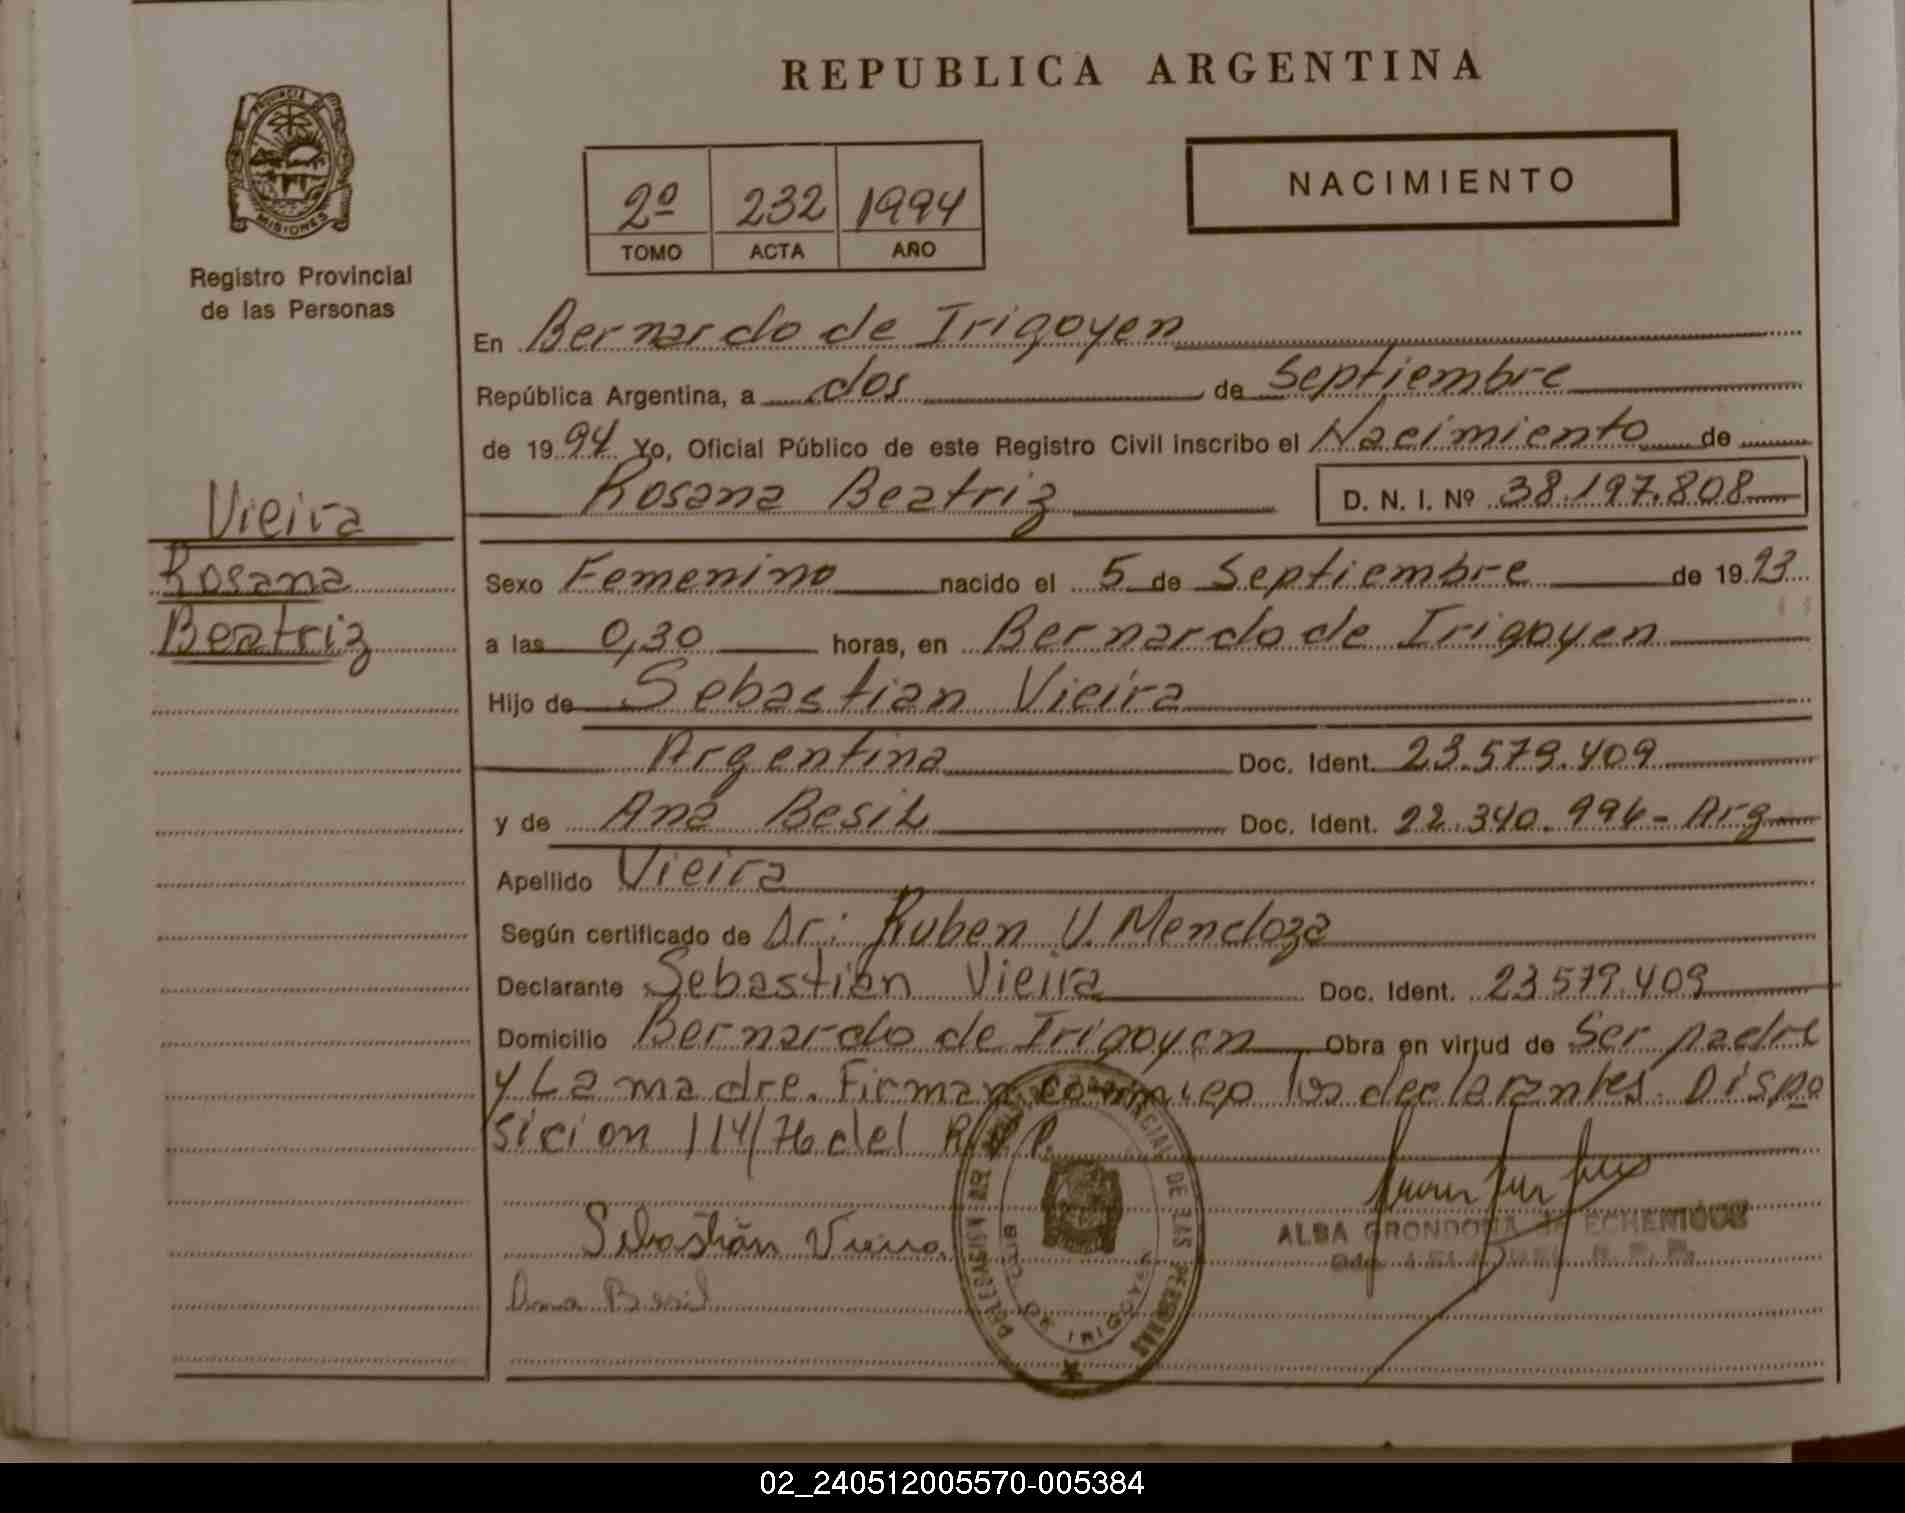 REPUBLICA ARGENTINA
PROVINCIA DE
MISIONES
Registro Provincial
de las Personas
2º 232 1994
TOMO ACTA AÑO
NACIMIENTO
En Bernardo de Irigoyen
República Argentina, a dos de Septiembre
de 1994 Yo, Oficial Público de este Registro Civil inscribo el Nacimiento de
Rosana Beatriz D. N. I. Nº 38.197.808
Vieira
Rosana
Beatriz
Sexo Femenino nacido el 5 de Septiembre de 1993
a las 0,30 horas, en Bernardo de Irigoyen
Hijo de Sebastian Vieira
Argentina Doc. Ident. 23.579.409
y de Ana Besil Doc. Ident. 22.340.996 - Arg
Apellido Vieira
Según certificado de Dr: Ruben V. Mendoza
Declarante Sebastian Vieira Doc. Ident. 23579.409
Domicilio Bernardo de Irigoyen Obra en virtud de Ser padre
y La madre. Firman conmigo los declarantes. Dispo
sicion 114/76 del R.P.P.
Sebastián Vieira
Ana Besil
DELEGACION DEL REGISTRO PROVINCIAL DE LAS PERSONAS
BDO. DE IRIGOYEN
ALBA GRONDONA de ECHENIQUE
R. P. P.
02_240512005570-005384